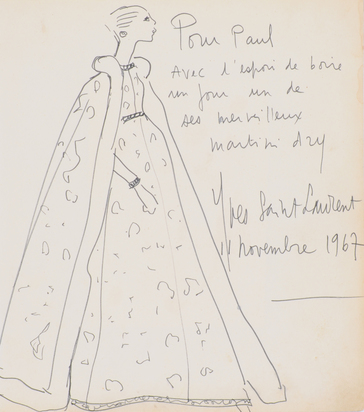 Pour Paul
Avec l'espoir de boire
un jour un de
ses merveilleux
martini dry
Yves Saint Laurent
11 novembre 1967